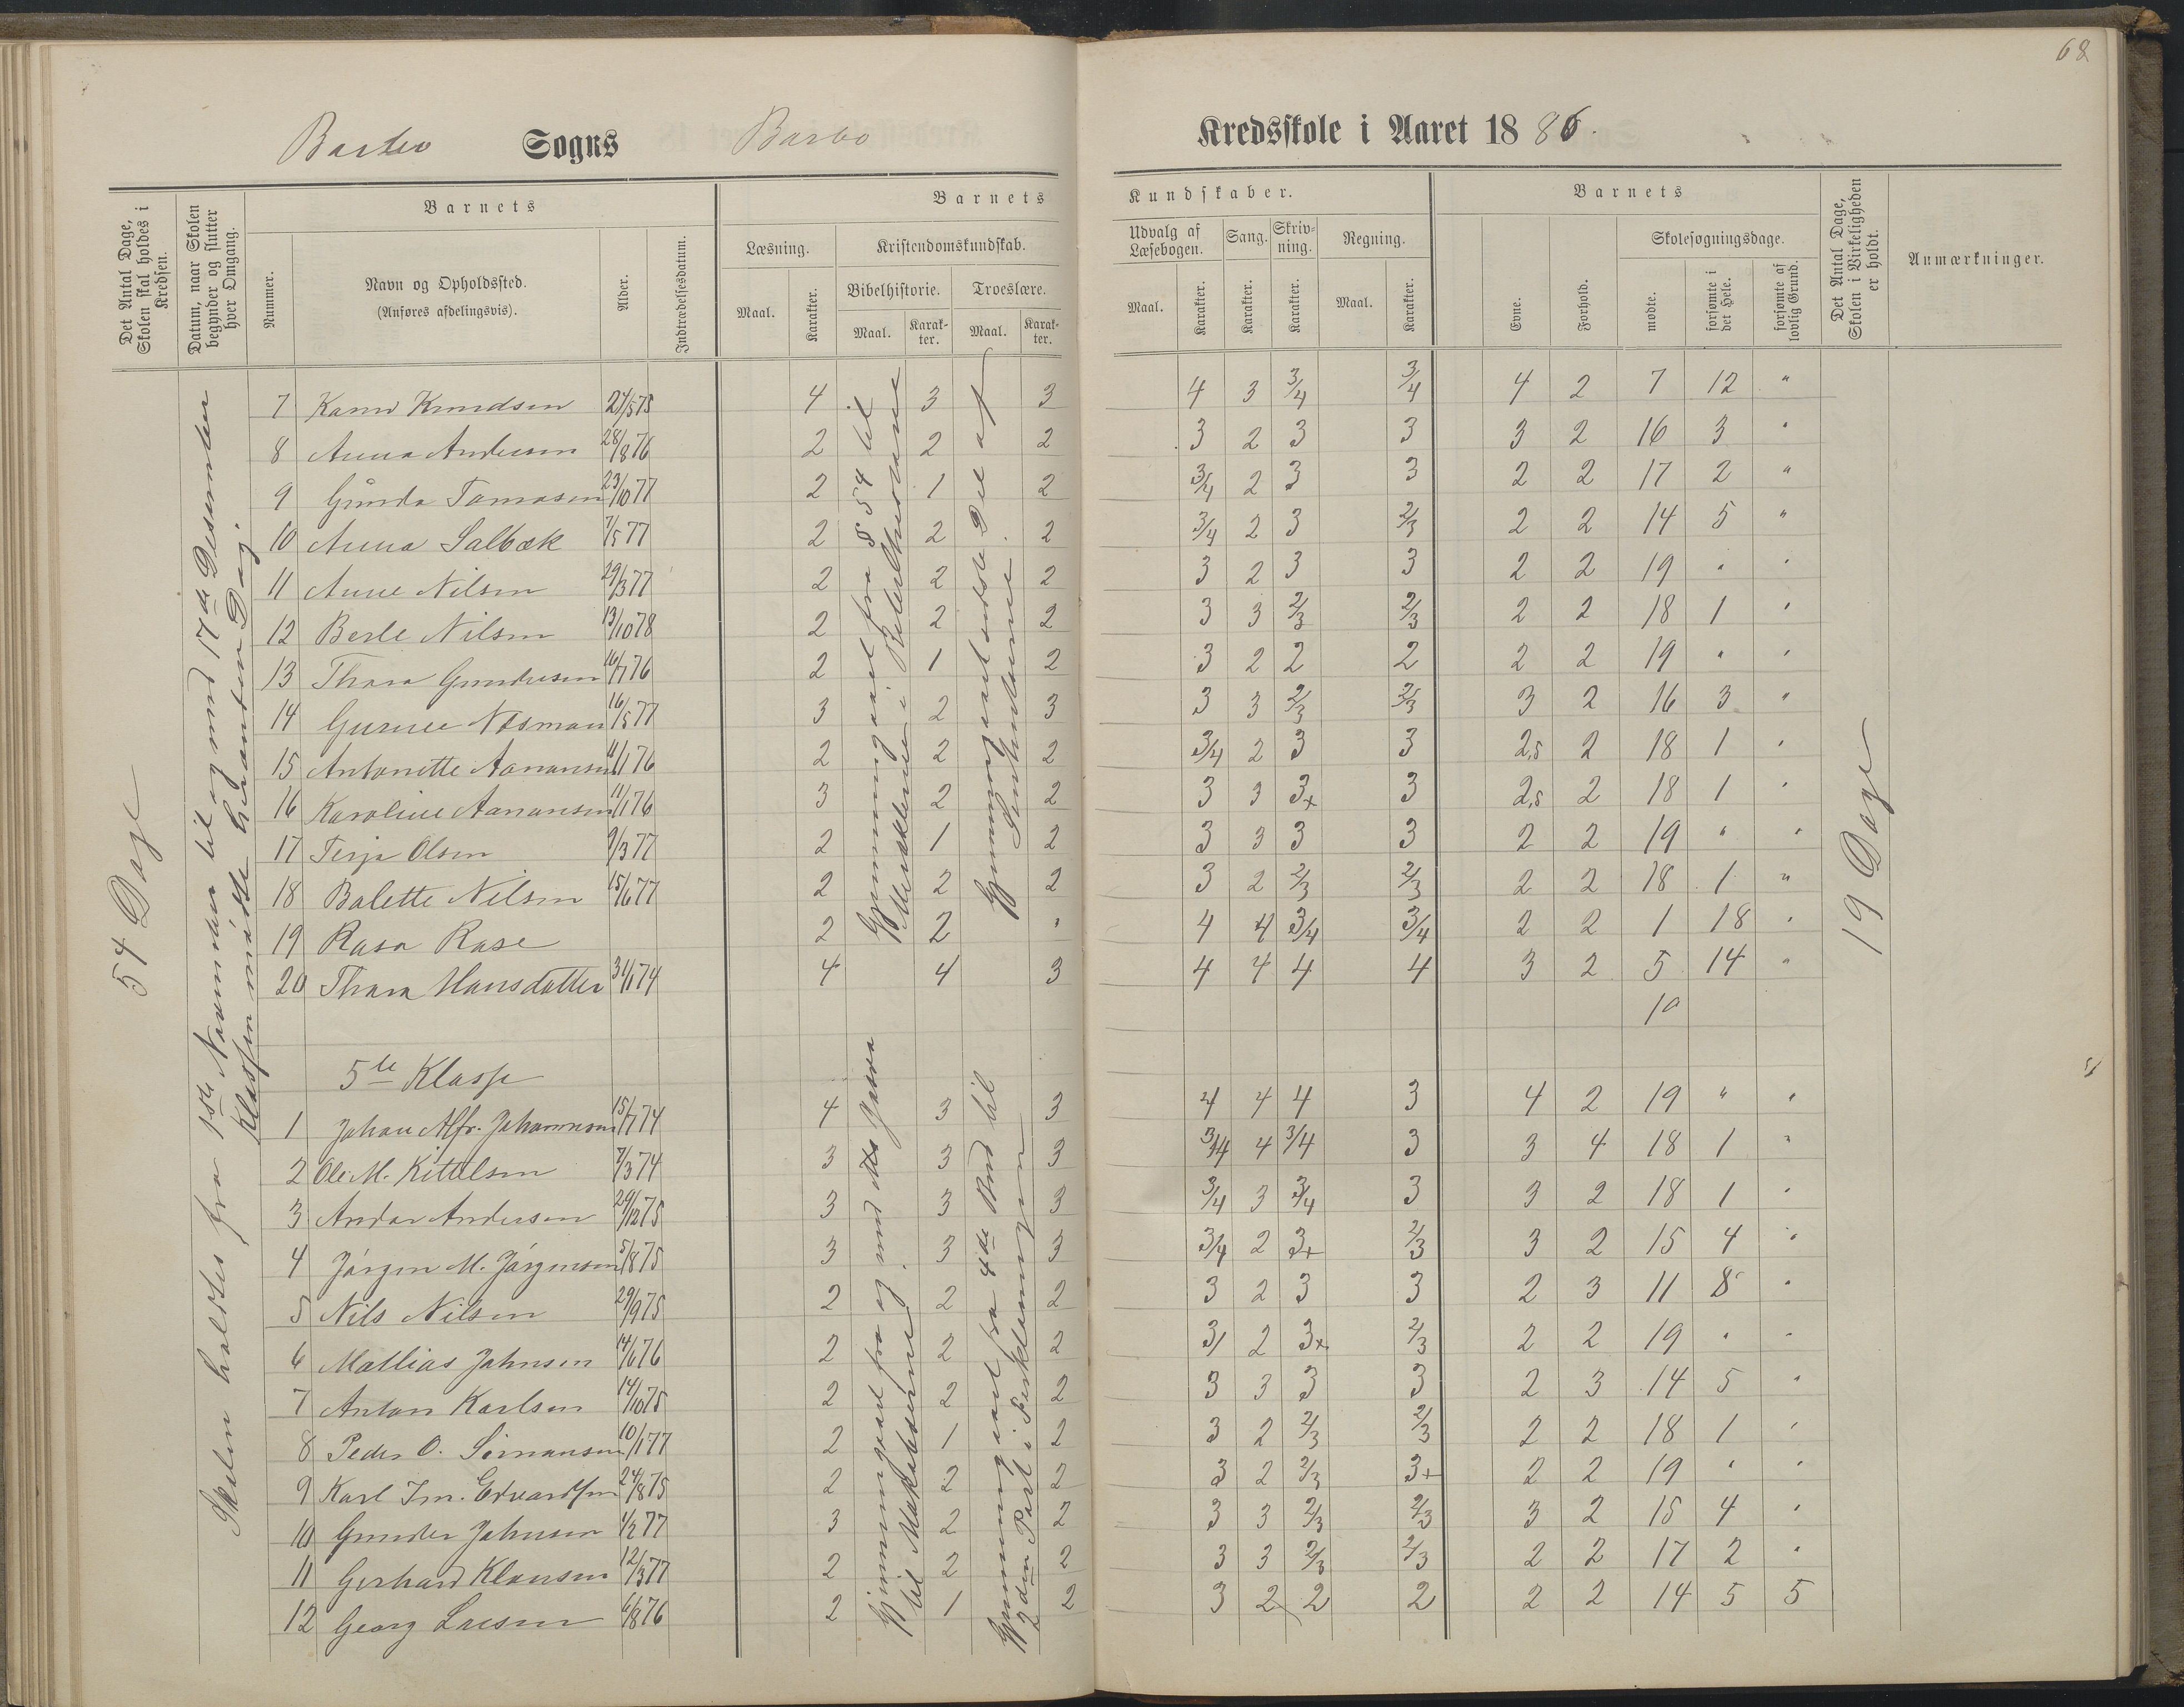 68
Barbo Sogns Barbo Kredsskole i Aaret 1886.
Det Antal Dage, Skolen skal holdes i Kredsen.
Datum, naar Skolen begynder og slutter hver Omgang.
Barnets
Nummer.
Navn og Opholdssted.
(Anføres afdelingsvis).
Alder.
Indtrædelsesdatum.
Barnets Kundskaber.
Læsning.
Maal. Karakter.
Kristendomskundskab.
Bibelhistorie. Troeslære.
Maal. Karakter. Maal. Karakter.
Udvalg af Læsebogen. Sang. Skrivning. Regning.
Maal. Karakter. Karakter. Karakter. Maal. Karakter.
Barnets
Evne. Forhold.
Skolesøgningsdage.
mødte. forsømte i det Hele. forsømte af lovlig Grund.
Det Antal Dage, Skolen i Virkeligheden er holdt.
Anmærkninger.
54 Dage
Skolen holdtes fra 1ste November til og med 17de Desember
Klassen mødte hveranden Dag.
Gjennemgaaet fra § 54 til
Miraklerne i
Gjennemgaaet sidste Del af
19 Dage
7 Knudsen 24/5 75 4 3 3 4 3 3/4 3/4 4 2 7 12 "
8 Anna Andersen 28/8 76 2 2 2 3 2 3 3 3 2 16 3 "
9 Gunda Tomasen 23/10 77 2 1 2 3/4 2 3 3 2 2 17 2 "
10 Anna Salbæk 7/5 77 2 2 2 3/4 2 3 2/3 2 2 14 5 "
11 Anne Nilsen 29/3 77 2 2 2 3 2 3 3 2 2 19 " "
12 Berte Nilsen 13/10 78 2 2 2 3 3 2/3 2/3 2 2 18 1 "
13 Thara Gundersen 16/7 76 2 1 2 3 2 2 2 2 2 19 " "
14 Næsman 16/5 77 3 2 3 3 3 2/3 2/3 3 2 16 3 "
15 Antonette Aanansen 11/1 76 2 2 2 3/4 2 3 3 2,5 2 18 1 "
16 Karoline Aanansen 11/1 76 3 2 2 3 3 3+ 3 2,5 2 18 1 "
17 Terja Olsen 9/3 77 2 1 2 3 3 3 3 2 2 19 " "
18 Balette Nilsen 15/6 77 2 2 2 3 2 2/3 2/3 2 2 18 1 "
19 Rasa Rase 2 2 " 4 4 3/4 3/4 2 2 1 18 "
20 Thara Hansdatter 31/1 74 4 4 3 4 4 4 4 3 2 5 14 "
10
5te Klasse
Gjennemgaaet fra og med
til Makabæerne
Gjennemgaaet fra 4de Bud til
2den Part i Forklaringen
1 Johan Alfr. Johannesen 15/7 74 4 3 3 4 4 4 3 4 2 19 " "
2 Ole M. Kittelsen 7/3 74 3 3 3 3/4 4 3/4 3 3 4 18 1 "
3 Andar Andersen 29/12 75 3 3 3 3/4 3 3/4 3 3 2 18 1 "
4 Jörgen M. Jörgensen 5/8 75 3 3 3 3/4 2 3+ 2/3 3 2 15 4 "
5 Nils Nilsen 29/9 75 2 2 2 3 2 3 3 2 3 11 8 "
6 Mathias Johnsen 14/6 76 2 2 2 3/ 2 3+ 2/3 2 2 19 " "
7 Anton Karlsen 14/10 75 2 2 2 3 3 3 3 2 3 14 5 "
8 Peder O. 10/1 77 2 1 2 3 2 2/3 2/3 2 2 18 1 "
9 Karl Im. Edvardsen 24/8 75 2 2 2 3 2 2/3 3+ 2 2 19 " "
10 Gunder Johnsen 1/2 77 3 2 2 3 3 2/3 2/3 3 2 15 4 "
11 Gerhard Klausen 12/3 77 2 2 2 3 3 2/3 2/3 2 2 17 2 "
12 Georg 6/8 76 2 1 2 3 2 2 2 2 2 14 5 5